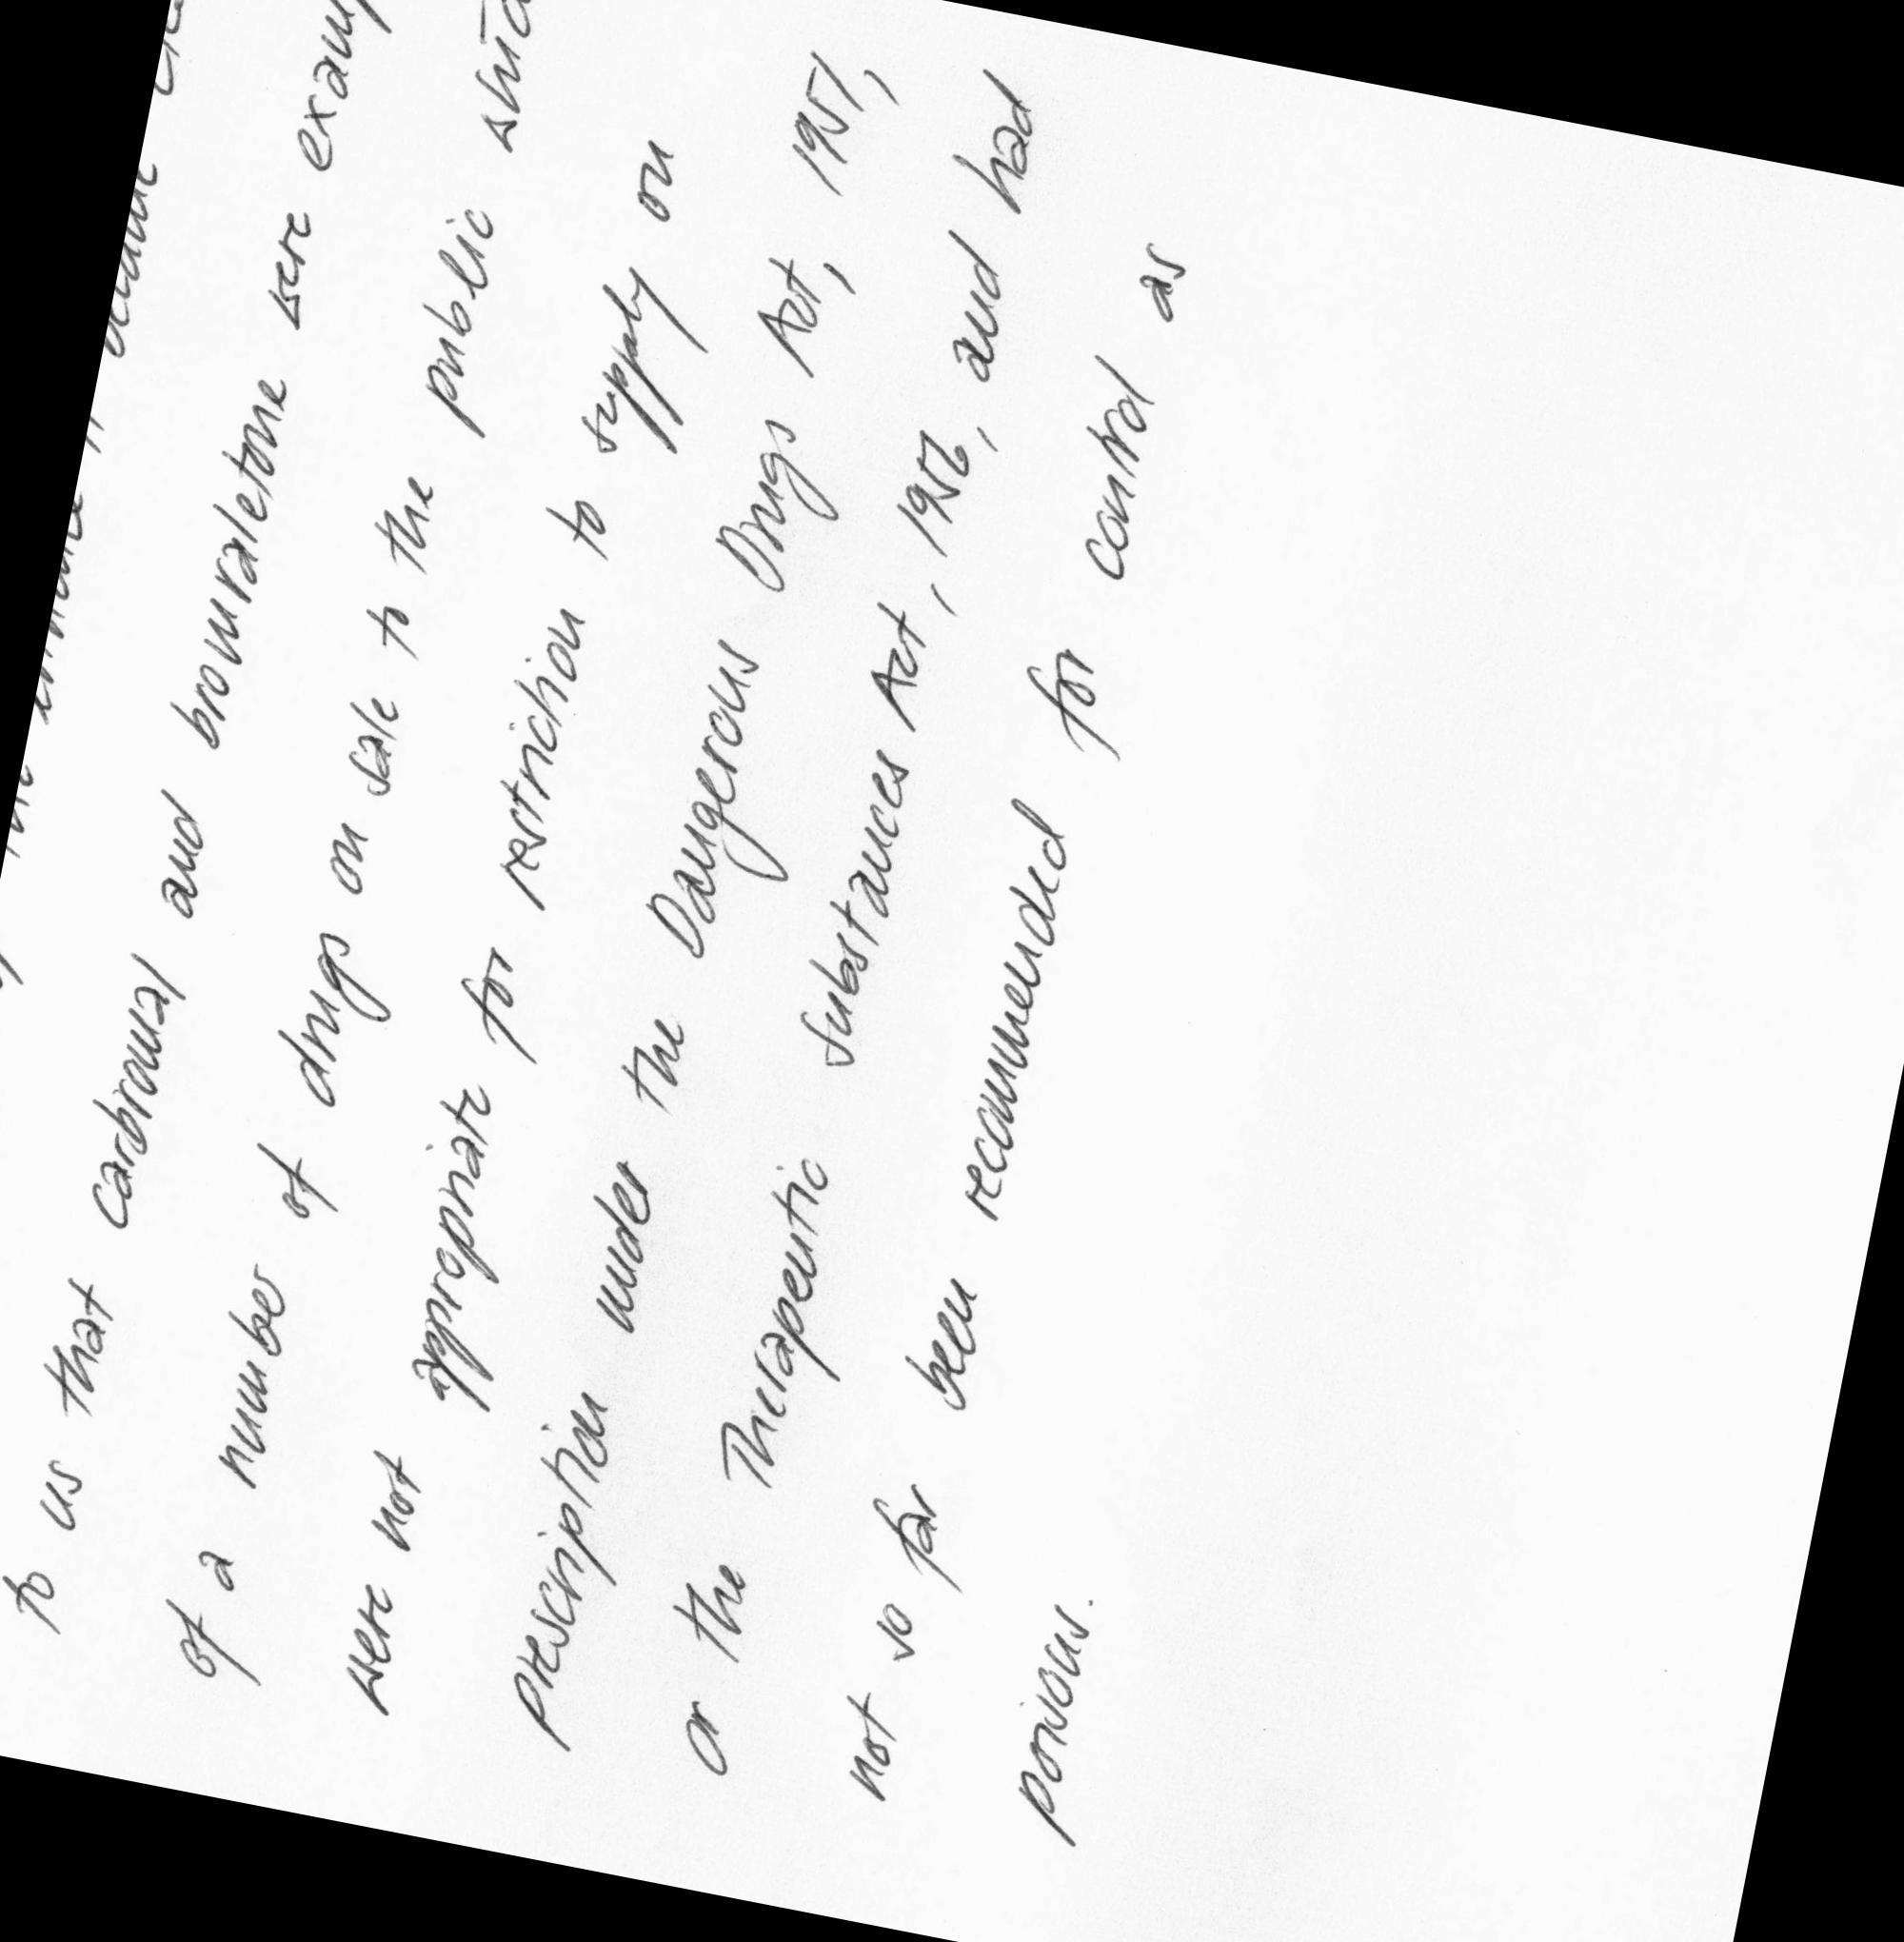 to us that Carbromal and bromuraletone were examp
of a number of drugs on sale to the public whic
were not appropriate for restriction to supply on
prescription under the Dangerous Drugs Act, 1951,
or the Therapeutic Substances Act, 1956, and had
not so far been recommended for control as
poisons.